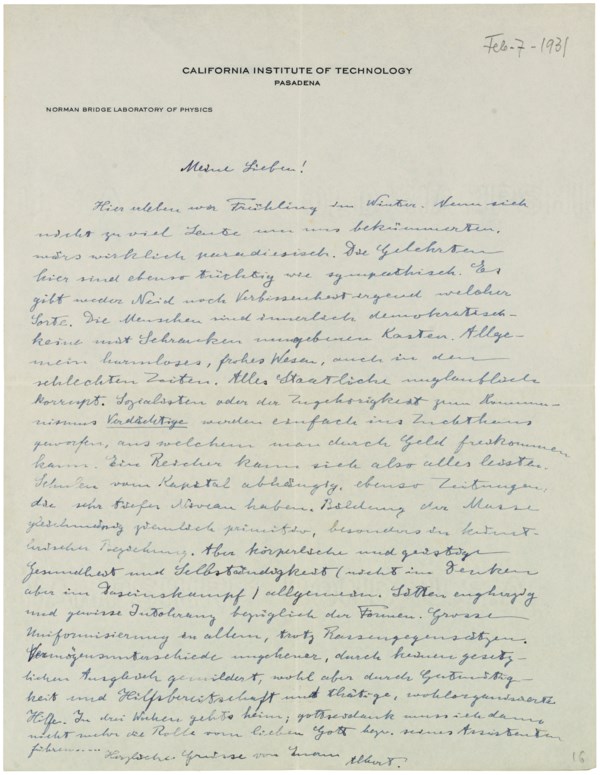 Feb-7-1931
CALIFORNIA INSTITUTE OF TECHNOLOGY
PASADENA
NORMAN BRIDGE LABORATORY OF PHYSICS
Meine Lieben!
Hier erleben wir Frühling im Winter. Wenn sich
nicht zu viel Leute um uns bekümmerten,
wärs wirklich paradiesisch. Die Gelehrten
hier sind ebenso tüchtig wie sympathisch. Es
gibt weder Neid noch Verbissenheit irgend welcher
Sorte. Die Menschen sind innerlich demokratisch-
keine mit Schranken umgebenen Kasten. Allge-
mein harmloses, frohes Wesen, auch in den
schlechten Zeiten. Alles Staatliche unglaublich
korrupt. Sozialisten oder der Zugehörigkeit zum Kommu-
nismus Verdächtige werden einfach ins Zuchthaus
geworfen, aus welchem man durch Geld freikommen
kann. Ein Reicher kann sich also alles leisten.
Schulen vom Kapital abhängig, ebenso Zeitungen,
die sehr tiefes Niveau haben. Bildung der Masse
gleichmässig ziemlich primitiv, besonders in künst-
lerischer Beziehung. Aber körperliche und geistige
Gesundheit und Selbständigkeit (nicht im Denken
aber im Daseinskampf) allgemein. Sitten engherzig
und gewisse Intoleranz bezüglich der Formen. Grosse
Uniformisierung in allem, trotz Rassengegensätzen.
Vermögensunterschiede ungeheuer, durch keinen gesetz-
lichen Ausgleich gemildert, wohl aber durch Gutmütig-
keit und Hilfsbereitschaft und thätige, wohlorganisierte
Hilfe. In drei Wochen gehts heim; gottseidank muss ich dann
nicht mehr die Rolle vom lieben Gott bezw. seines Assistenten
führen....
Herzliche Grüsse von Eurem Albert.
16